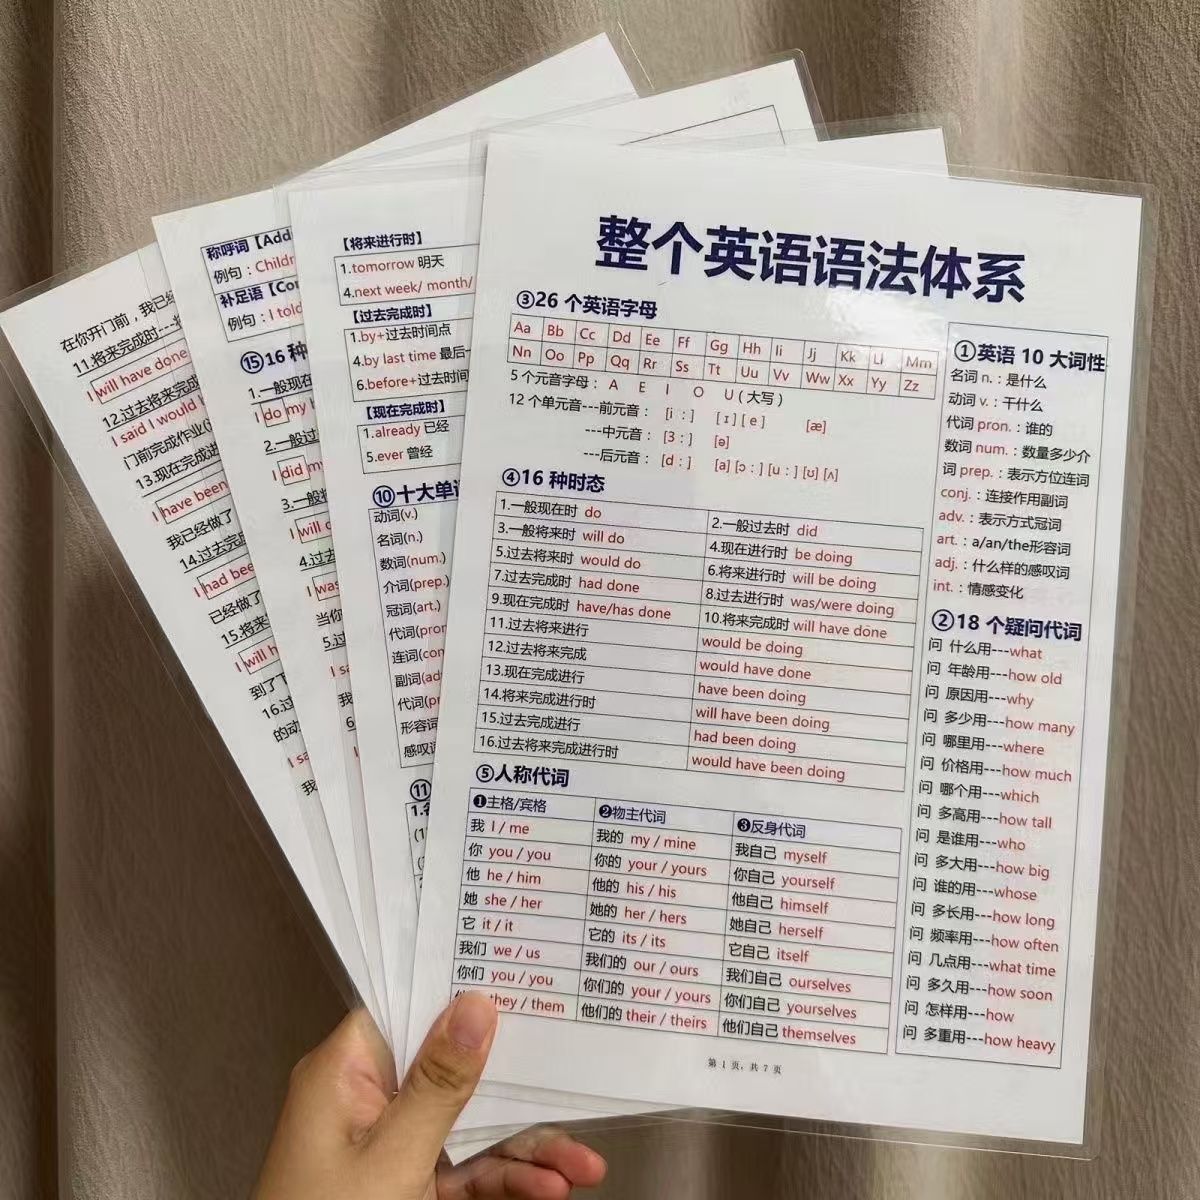 整个英语语法体系
③26 个英语字母
Aa Bb Cc Dd Ee Ff Gg Hh Ii Jj Kk Ll Mm
Nn Oo Pp Qq Rr Ss Tt Uu Vv Ww Xx Yy Zz
5 个元音字母： A E I O U ( 大写 )
12 个单元音---前元音： [i：] [ɪ] [e] [æ]
---中元音： [3：] [ə]
---后元音： [d：] [a] [ɔ：] [u：] [ʊ] [ʌ]
④16 种时态
1.一般现在时 do
2.一般过去时 did
3.一般将来时 will do
4.现在进行时 be doing
5.过去将来时 would do
6.将来进行时 will be doing
7.过去完成时 had done
8.过去进行时 was/were doing
9.现在完成时 have/has done
10.将来完成时 will have done
11.过去将来进行 would be doing
12.过去将来完成 would have done
13.现在完成进行 have been doing
14.将来完成进行时 will have been doing
15.过去完成进行 had been doing
16.过去将来完成进行时 would have been doing
⑤人称代词
❶主格/宾格 ❷物主代词 ❸反身代词
我 I / me 我的 my / mine 我自己 myself
你 you / you 你的 your / yours 你自己 yourself
他 he / him 他的 his / his 他自己 himself
她 she / her 她的 her / hers 她自己 herself
它 it / it 它的 its / its 它自己 itself
我们 we / us 我们的 our / ours 我们自己 ourselves
你们 you / you 你们的 your / yours 你们自己 yourselves
they / them 他们的 their / theirs 他们自己 themselves
①英语 10 大词性
名词 n.：是什么
动词 v.：干什么
代词 pron.：谁的
数词 num.：数量多少介
词 prep.：表示方位连词
conj.：连接作用副词
adv.：表示方式冠词
art.：a/an/the形容词
adj.：什么样的感叹词
int.：情感变化
②18 个疑问代词
问 什么用---what
问 年龄用---how old
问 原因用---why
问 多少用---how many
问 哪里用---where
问 价格用---how much
问 哪个用---which
问 多高用---how tall
问 是谁用---who
问 多大用---how big
问 谁的用---whose
问 多长用---how long
问 频率用---how often
问 几点用---what time
问 多久用---how soon
问 怎样用---how
问 多重用---how heavy
第 1 页，共 7 页
【将来进行时】
1.tomorrow 明天
4.next week/ month/
【过去完成时】
1.by+过去时间点
4.by last time 最后一
6.before+过去时间
【现在完成时】
1.already 已经
5.ever 曾经
⑩十大单
动词(v.)
名词(n.)
数词(num.)
介词(prep.)
冠词(art.)
代词(pron
连词(con
副词(ad
代词(p
形容词
感叹词
⑪
称呼词【Add
例句：Childr
补足语【Co
例句：I told
⑮16 种
1.一般现在
I do my
2.一般过
I did my
3.一般将
I will
4.过去
I was
当你
5.过
I sa
我
6
在你开门前，我已经
11.将来完成时---将
I will have done
12.过去将来完成
I said I would
门前完成作业
13.现在完成进
I have been
我已经做了
14.过去完成
I had bee
已经做了
15.将来
I will h
到了
16.过
的动
I sa
我